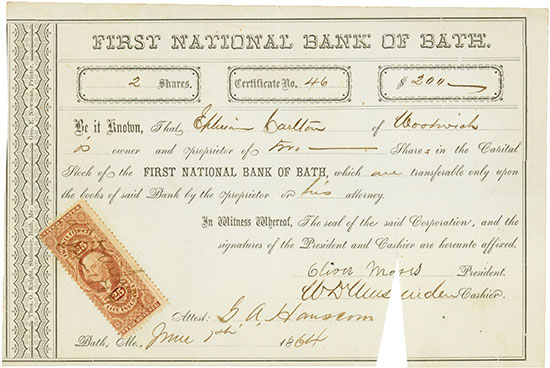 FIRST NATIONAL BANK OF BATH.
2 Shares.
Certificate No. 46
$ 200
Be it Known, That Ephraim Carlton of Woolwich
is owner and proprietor of two Shares in the Capital
Stock of the FIRST NATIONAL BANK OF BATH, which are transferable only upon
the books of said Bank by the proprietor or his attorney.
In Witness Whereof, The seal of the said Corporation, and the
signatures of the President and Cashier are hereunto affixed.
Oliver Moses President.
Cashier.
Attest: G. A. Hanscom
Bath, Me., June 7th 1864
Geo. E. Newman, Printer,